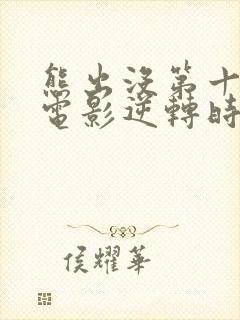 熊出沒第十
電影逆轉時
侯耀華